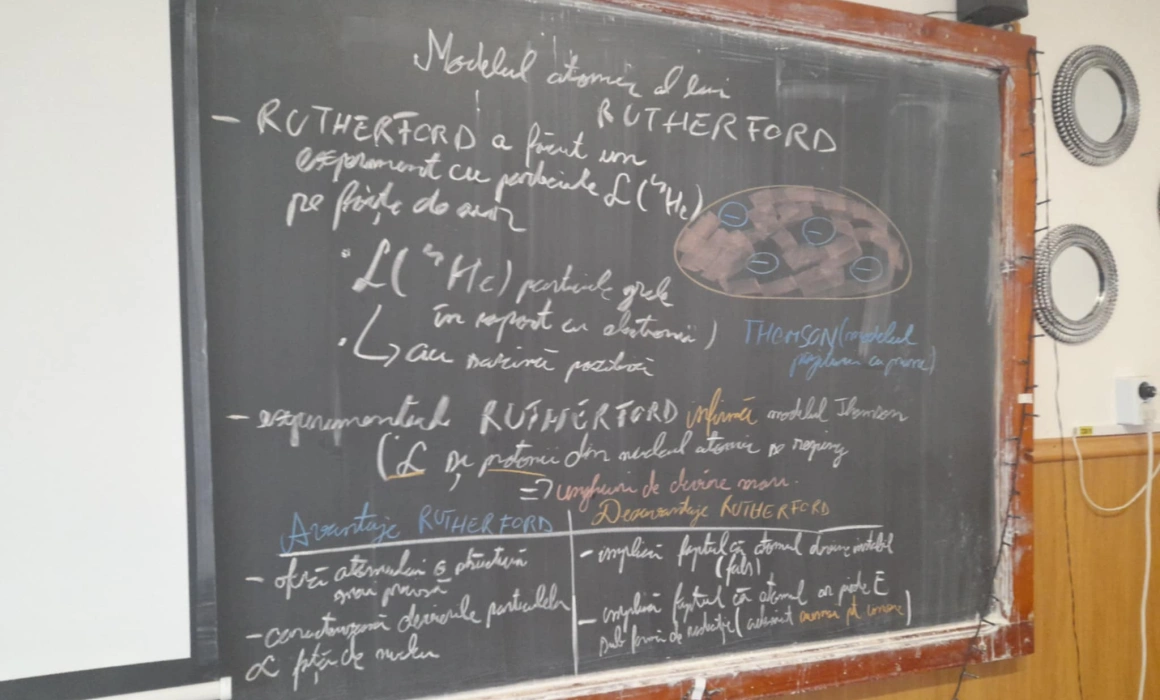 Modelul atomic al lui
RUTHERFORD
- RUTHERFORD a făcut un
experiment cu particule α (⁴He)
pe foițe de aur
• α (⁴He) particule grele
în raport cu electronii)
• ↳ au sarcină pozitivă
THOMSON (modelul
cu prune)
- experimentul RUTHERFORD infirmă modelul Thomson
(α și protonii din nucleul atomic se resping
=> unghiuri de deviere mari.
Avantaje RUTHERFORD
- oferă atomului o structură
mai precisă
- caracterizează devierile particulelor
α față de nucleu
Dezavantaje RUTHERFORD
- implică faptul că atomul devine instabil
(fals)
- implică faptul că atomul ar pierde E
sub formă de radiație (
)